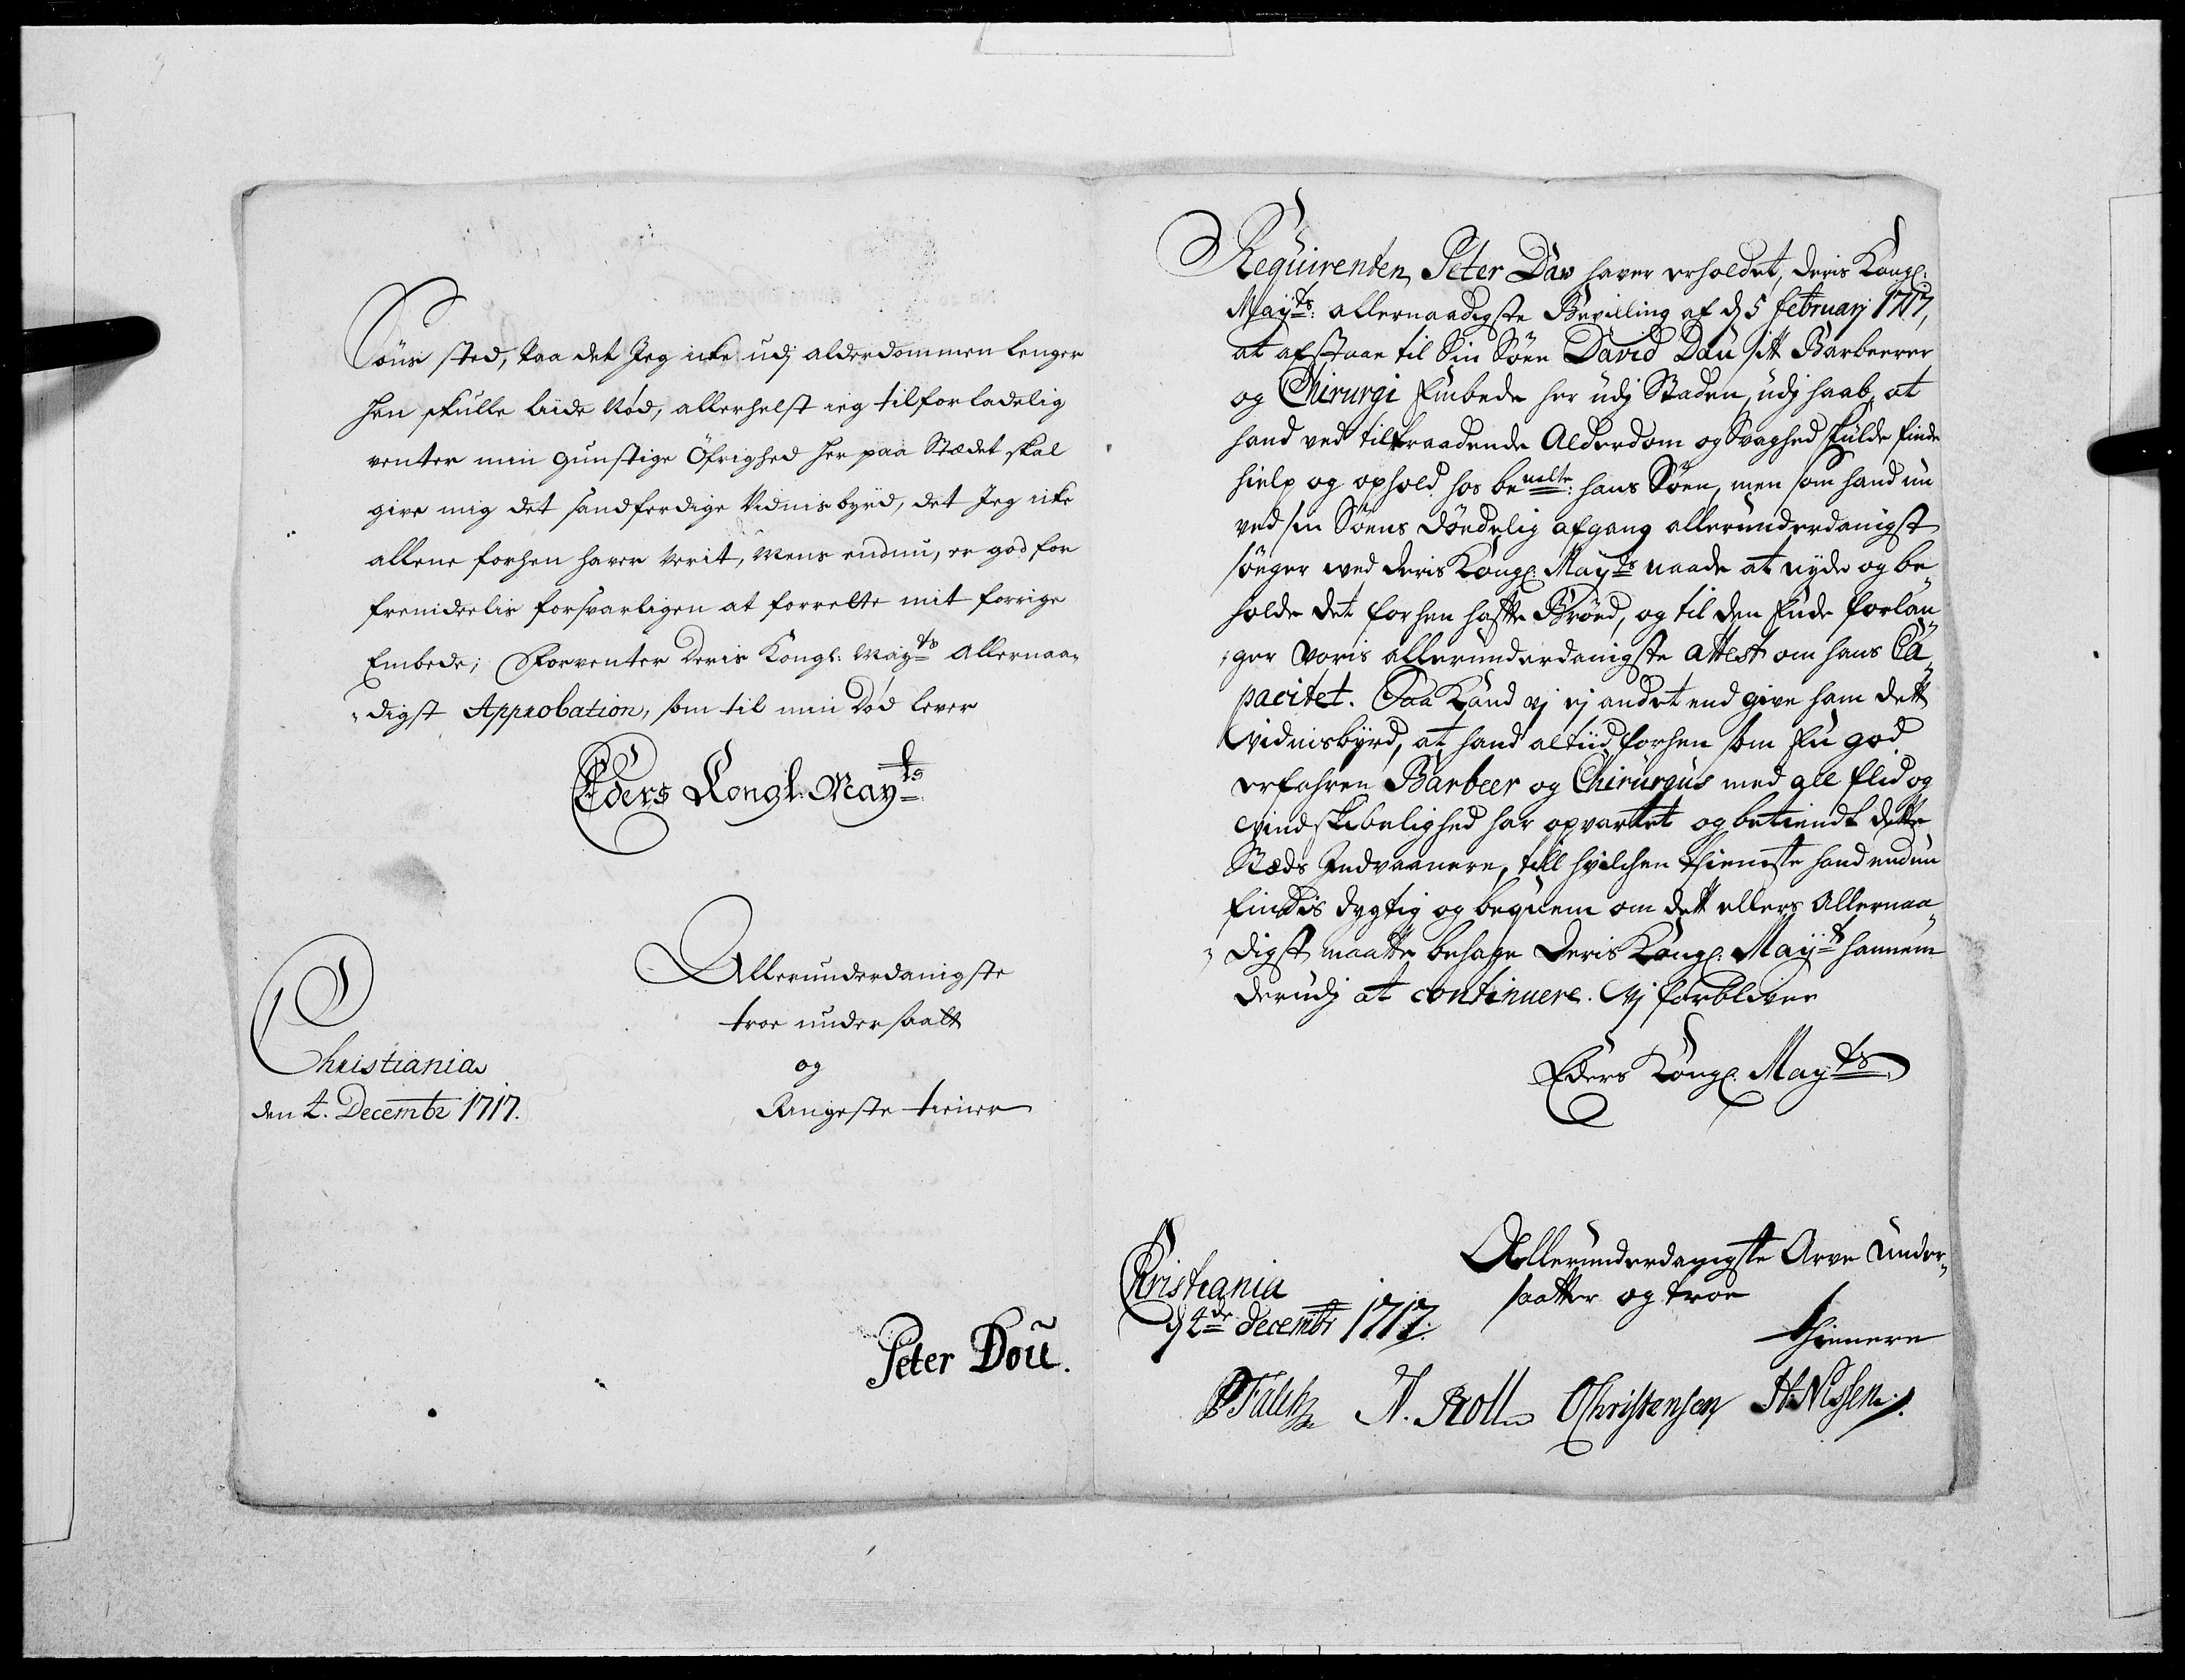 Söns sted, Paa det Jeg icke udj alderdommen lenger
hen skulle liide Nød, allerhelst ieg tilforladelig
venter min gunstige Öfrighed her paa Stædet skal
give mig det sandferdige Vidnisbyrd, det Jeg icke
allene forhen haver verit, Mens endnu, er god for
fremdeelis forsvarligen at forrette mit forrige
Embede; Forventer Deris Kongl: Mayts Allernaa-
digst Approbation, som til min Død lever
Eders Kongl: Mayts
Allerunderdanigste
troe undersaatt
og
Ringeste tiener
Christiania
den 4. Decembr 1717.
Peter Doü.
Requirenten Peter Dav haver erholdet, Deris Kongl:
Mayts: allernaadigste Bevilling af d 5 februarj 1717,
at afstaae til Sin Søn David Dau sitt Barberer
og Chirurgi Embede her udj Staden, udj haab, at
hand ved tiltraadende Alderdom og Svaghed skulde finde
hielp og ophold hos bemelte: hans Søn, men som hand nu
ved sin Søns dødelig afgang allerunderdanigst
søger ved Deris Kongl: Mayts naade at nyde og be-
holde det forhen hafte Brød, og til den Ende forlan-
ger Voris allerunderdanigste attest om hans Ca-
pacitet. Saa Kand vj ej andet end give ham dett
Vidnisbyrd, at hand altiid forhen som En god
erfahren Barbeer og Chirurgus med all flid og
Vindskibelighed har opvartet og betiendt dette
Stæds Indvaanere, till hvilchen thieniste hand endnu
findis dygtig og beqvem om det ellers Allernaa-
digst maatte behage Deris Kongl: Mayt hannem
derudj at continuere. Vj forbliver
Eders Kongl: Mayts
Allerunderdanigste Arve Under-
saatter og troe
thienere
Christiania
d 4de decembr 1717.
Falch N. Roll Christensen H. Nissen